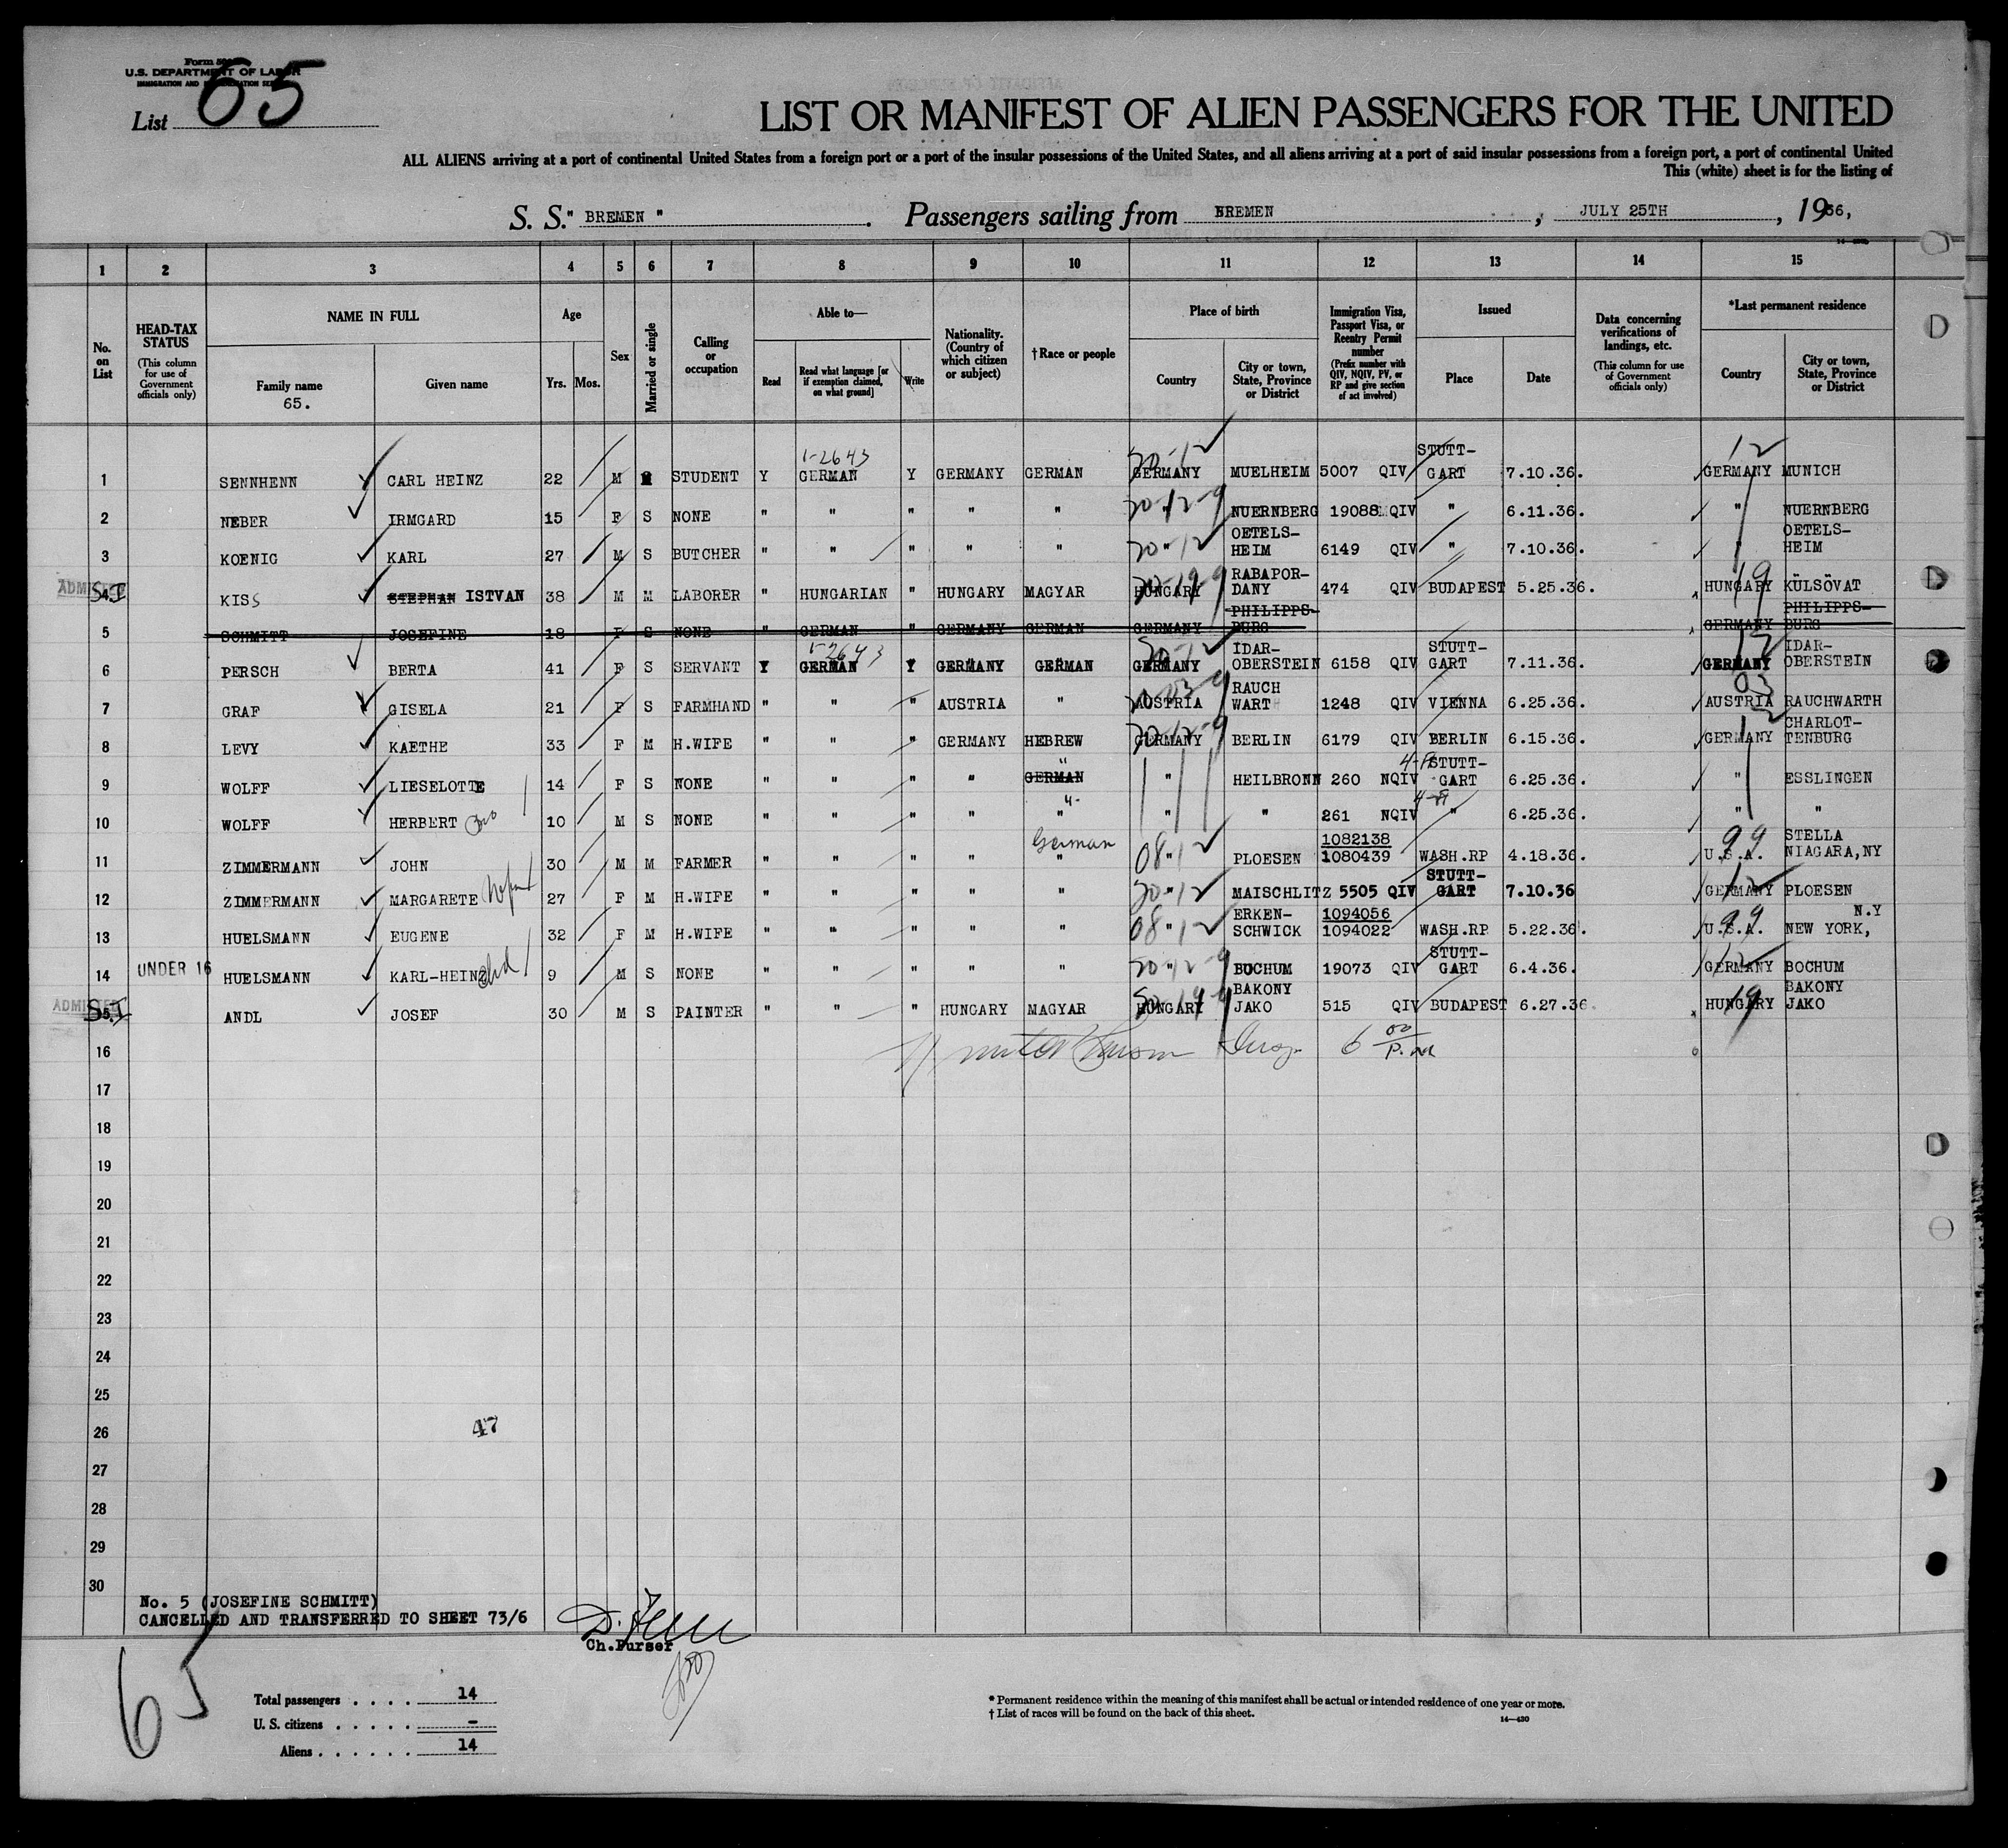 Form
U.S. DEPARTMENT OF LABOR
IMMIGRATION AND NATURALIZATION SERVICE
List 65
LIST OR MANIFEST OF ALIEN PASSENGERS FOR THE UNITED
ALL ALIENS arriving at a port of continental United States from a foreign port or a port of the insular possessions of the United States, and all aliens arriving at a port of said insular possessions from a foreign port, a port of continental United
This (white) sheet is for the listing of
S. S. " BREMEN " . Passengers sailing from BREMEN , JULY 25TH , 1936,
1 2 3 4 5 6 7 8 9 10 11 12 13 14 15
No. on List
HEAD-TAX STATUS (This column for use of Government officials only)
NAME IN FULL
Family name 65.
Given name
Age
Yrs. Mos.
Sex
Married or single
Calling or occupation
Able to—
Read
Read what language [or if exemption claimed, on what ground]
Write
Nationality. (Country of which citizen or subject)
† Race or people
Place of birth
Country
City or town, State, Province or District
Immigration Visa, Passport Visa, or Reentry Permit number (Prefix number with QIV, NQIV, PV, or RP and give section of act involved)
Issued
Place
Date
Data concerning verifications of landings, etc. (This column for use of Government officials only)
*Last permanent residence
Country
City or town, State, Province or District
1 SENNHENN CARL HEINZ 22 M STUDENT Y 1-2643 GERMAN Y GERMANY GERMAN 20-12 GERMANY MUELHEIM 5007 QIV STUTT-GART 7.10.36. 12 GERMANY MUNICH
2 NEBER IRMGARD 15 F S NONE " " " " " 20-12-9 " NUERNBERG 19088 QIV " 6.11.36. " NUERNBERG
3 KOENIG KARL 27 M S BUTCHER " " " " " 20-12 " OETELS-HEIM 6149 QIV " 7.10.36. " OETELS-HEIM
ADMITTED S.I. 4 KISS STEPHAN ISTVAN 38 M M LABORER " HUNGARIAN " HUNGARY MAGYAR 20-19-9 HUNGARY RABAPOR-DANY 474 QIV BUDAPEST 5.25.36. 19 HUNGARY KÜLSÖVAT
5 SCHMITT JOSEFINE 18 F S NONE " GERMAN " GERMANY GERMAN GERMANY PHILIPPS-BURG GERMANY PHILIPPS-BURG
6 PERSCH BERTA 41 F S SERVANT Y 1-2643 GERMAN Y GERMANY GERMAN 20-12 GERMANY IDAR-OBERSTEIN 6158 QIV STUTT-GART 7.11.36. 12 GERMANY IDAR-OBERSTEIN
7 GRAF GISELA 21 F S FARMHAND " " " AUSTRIA " 20-03-9 AUSTRIA RAUCH WART 1248 QIV VIENNA 6.25.36. 03 AUSTRIA RAUCHWARTH
8 LEVY KAETHE 33 F M H.WIFE " " " GERMANY HEBREW 20-12-9 GERMANY BERLIN 6179 QIV BERLIN 6.15.36. 12 GERMANY CHARLOT-TENBURG
9 WOLFF LIESELOTTE 14 F S NONE " " " " GERMAN " " HEILBRONN 260 NQIV STUTT-GART 6.25.36. " ESSLINGEN
10 WOLFF HERBERT 10 M S NONE " " " " " " " 261 NQIV " 6.25.36. " "
11 ZIMMERMANN JOHN 30 M M FARMER " " " " German " 08-12 " PLOESEN 1082138 1080439 WASH.RP 4.18.36. 99 U.S.A. STELLA NIAGARA,NY
12 ZIMMERMANN MARGARETE 27 F M H.WIFE " " " " " 20-12 " MAISCHLITZ 5505 QIV STUTT-GART 7.10.36 12 GERMANY PLOESEN
13 HUELSMANN EUGENE 32 F M H.WIFE " " " " " 08-12 " ERKEN-SCHWICK 1094056 1094022 WASH.RP 5.22.36. 99 U.S.A. NEW YORK, N.Y
14 UNDER 16 HUELSMANN KARL-HEINZ chd 9 M S NONE " " " " " 20-12-9 " BOCHUM 19073 QIV STUTT-GART 6.4.36. 12 GERMANY BOCHUM
ADMITTED S.I. 15 ANDL JOSEF 30 M S PAINTER " " " HUNGARY MAGYAR HUNGARY BAKONY JAKO 515 QIV BUDAPEST 6.27.36. 19 HUNGARY BAKONY JAKO
16 6 00 P.M
17
18
19
20
21
22
23
24
25
26 47
27
28
29
30
No. 5 (JOSEFINE SCHMITT)
CANCELLED AND TRANSFERRED TO SHEET 73/6
Ch.Purser
65
Total passengers . . . . 14
U. S. citizens . . . . . -
Aliens . . . . . . 14
* Permanent residence within the meaning of this manifest shall be actual or intended residence of one year or more.
† List of races will be found on the back of this sheet.
14—430